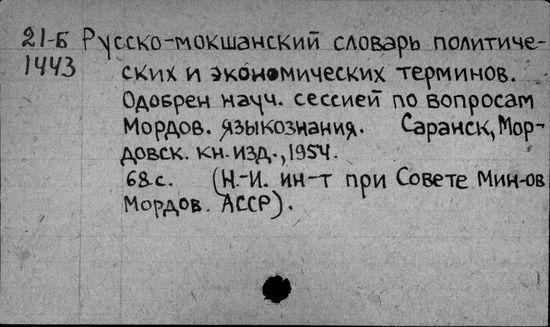 21-Б Русско-мокшанский словарь политиче-
1443 ских и экономических терминов.
Одобрен науч. сессией по вопросам
Мордов. языкознания. Саранск, Мор-
довск. кн. изд., 1954.
68 с. (Н.-И. ин-т при Совете Мин-ов
Мордов. АССР).